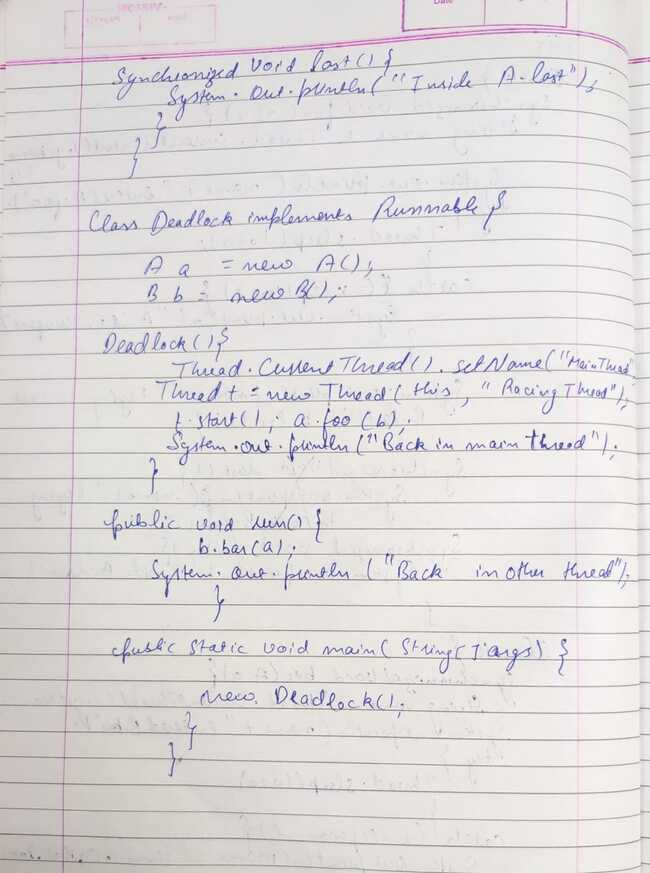 Date
Synchronized void last() {
System.out.println("Inside A.last");
}
}
Class Deadlock implements Runnable {
A a = new A();
B b = new B();
Deadlock(){
Thread.CurrentThread().setName("MainThread"
Thread t = new Thread(this, "Racing Thread");
t.start(); a.foo(b);
System.out.println("Back in main thread");
}
public void run() {
b.bar(a);
System.out.println ("Back in other thread");
}
public static void main(String[] args) {
new Deadlock();
}
}